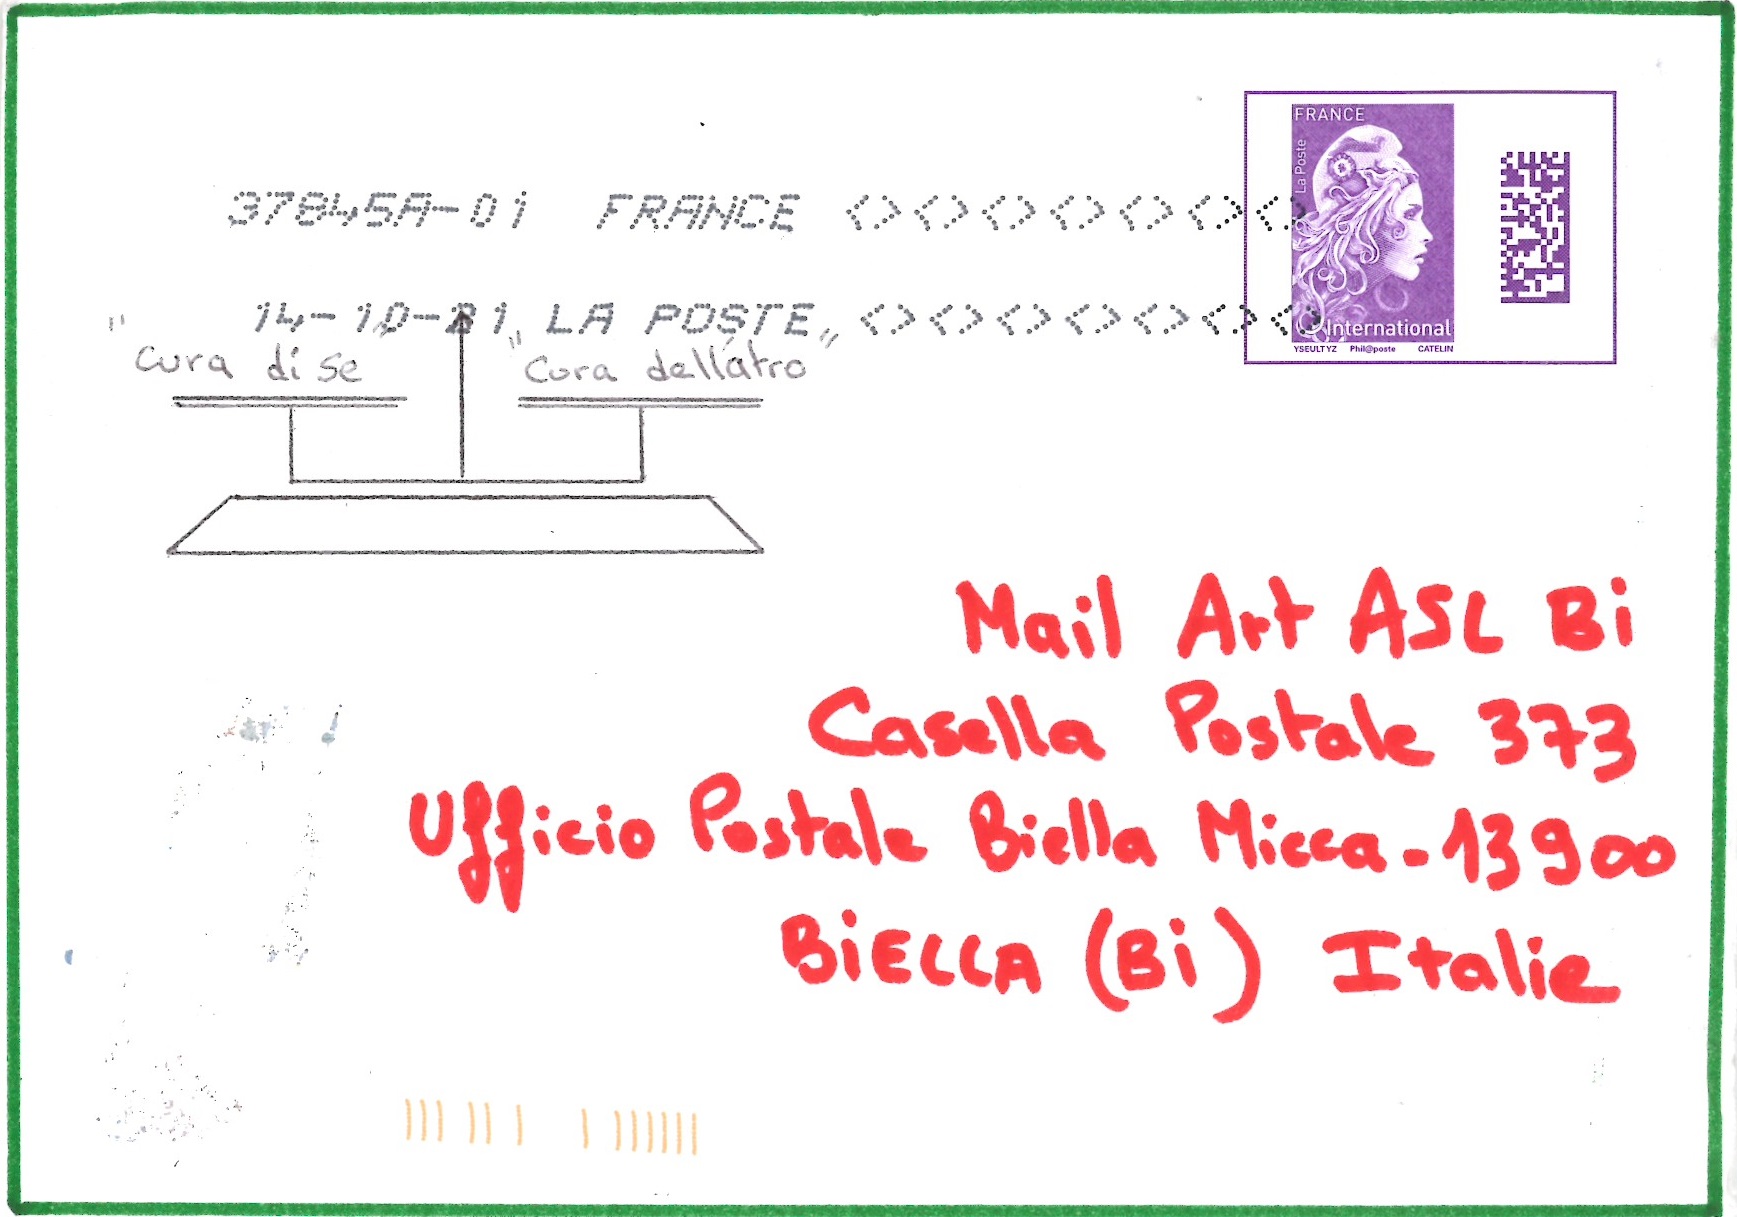 FRANCE
La Poste
37845A-01 FRANCE <><><><><><><>
14-10-21 LA POSTE <><><><><><><>
International
YSEULTYZ Phil@poste CATELIN
"cura di se" "cura dell'atro"
Mail Art ASL Bi
Casella Postale 373
Ufficio Postale Biella Micca - 13900
BiELLA (Bi) Italie